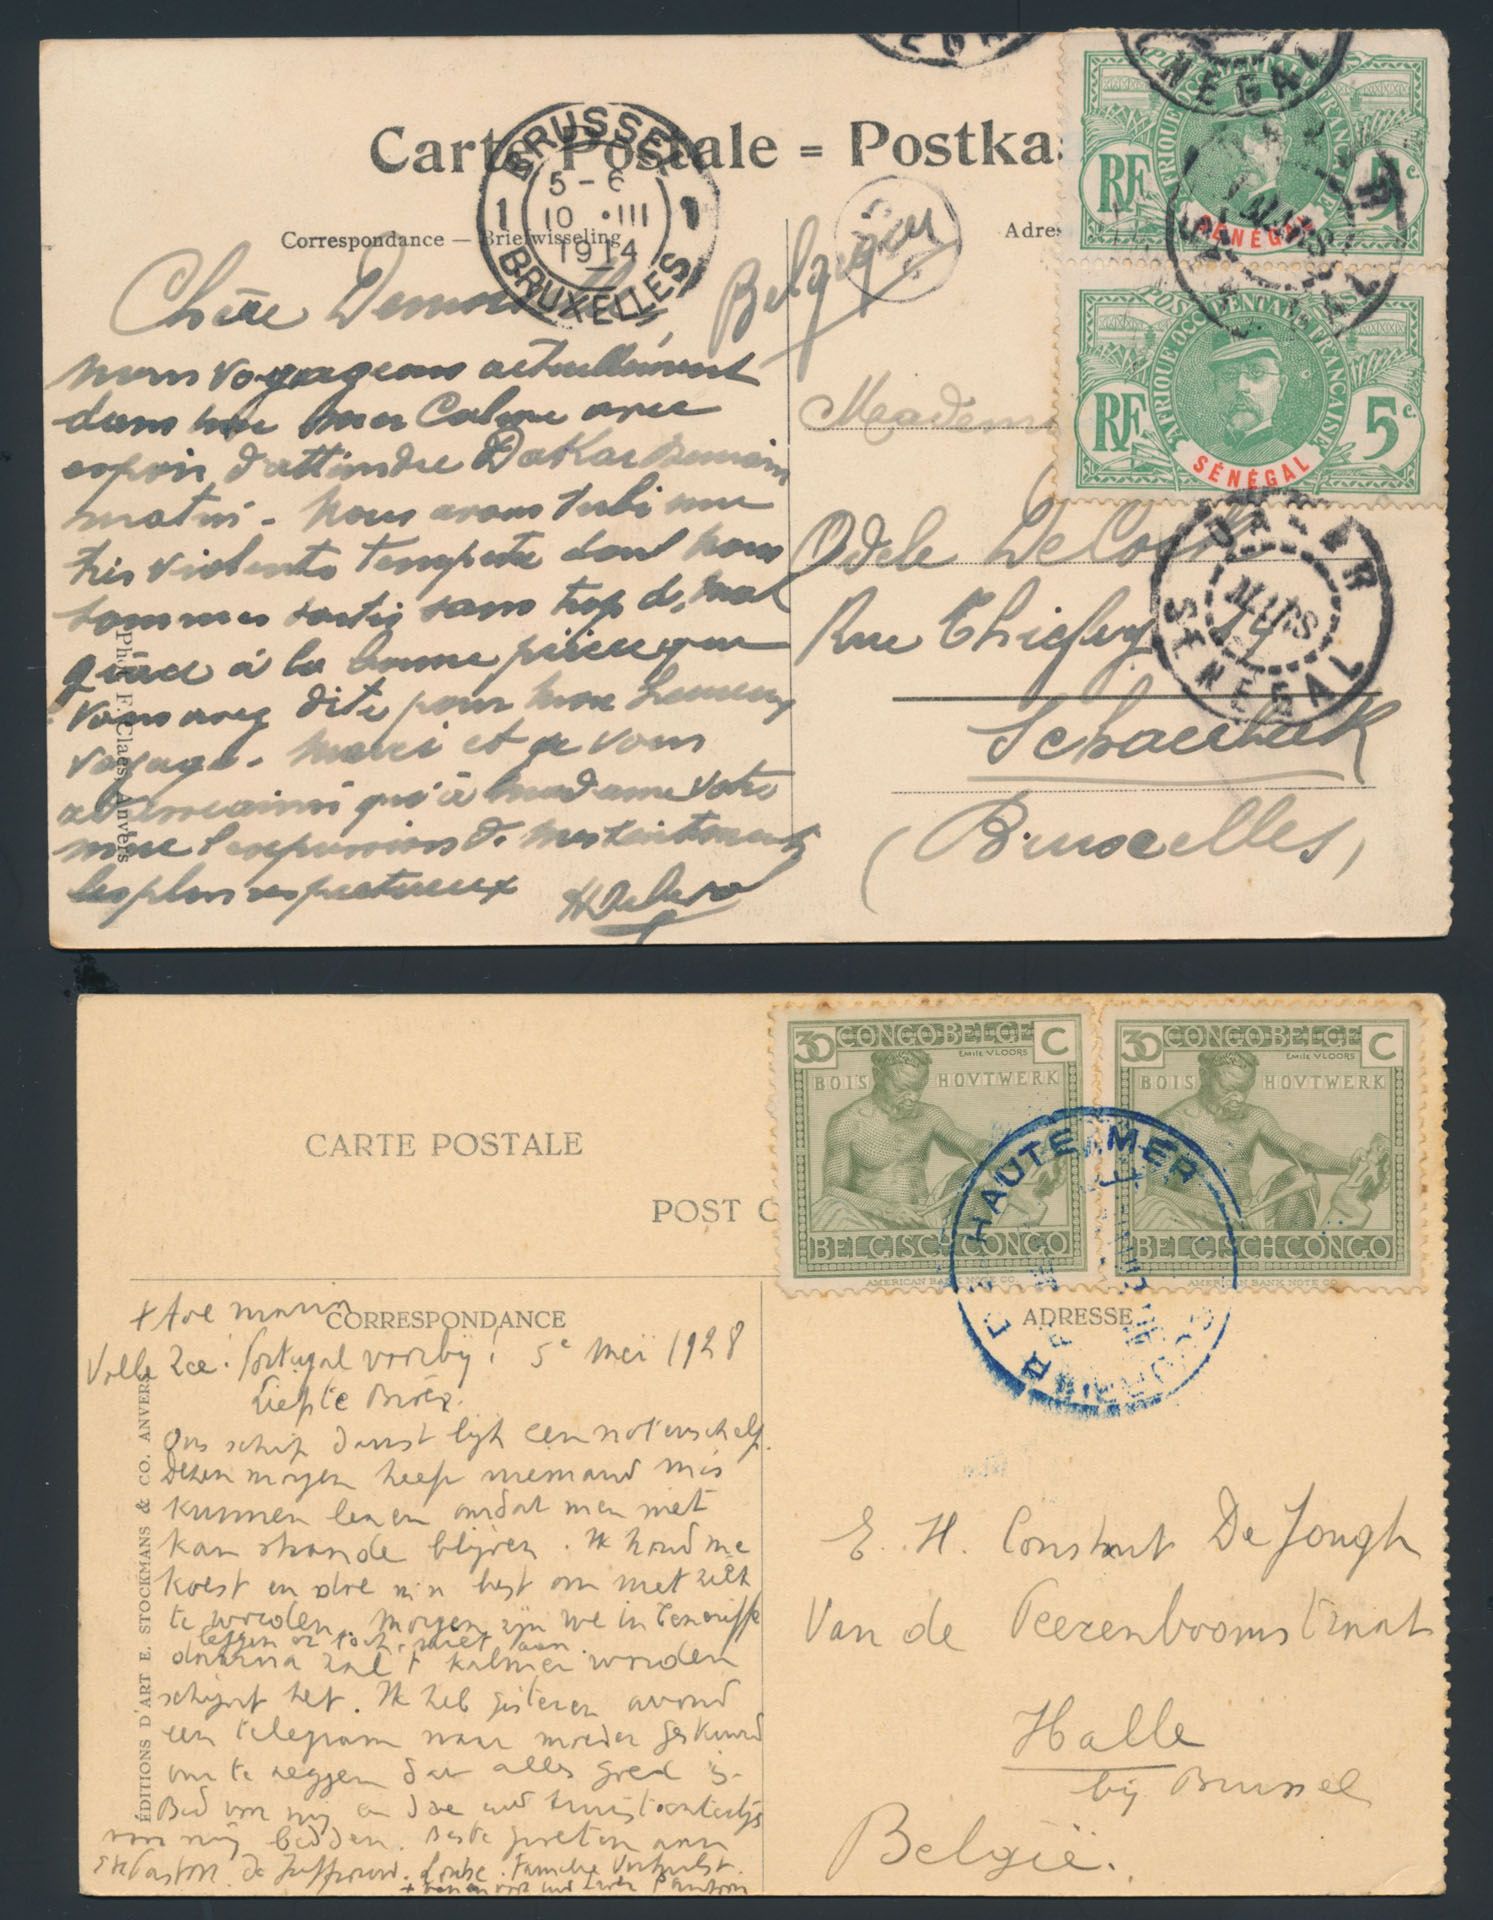 Carte Postale = Postka
Correspondance — Briefwisseling
Adres
BRUSSEL
5 - 6
1 10 · III 1
1914
BRUXELLES
POSTES
AFRIQUE OCCIDENTALE FRANÇAISE
RF 5 c.
SÉNÉGAL
POSTES
AFRIQUE OCCIDENTALE FRANÇAISE
RF 5 c.
SÉNÉGAL
DAKAR
MARS
14
SÉNÉGAL
Chère Demoiselle,
nous voyageons actuellement
dans une mer Calme avec
espoir d'attindre Dakar Demain
matin - nous avons subi une
très violente tempete dont nous
sommes sortis sans trop de mal
grâce à la bonne prière que
vous avez dite pour mon heureux
voyage. merci et je vous
ainsi qu'à madame votre
mère l'expression de mes sentiments
les plus respectueux
Belgique
Madem
Odele
Rue Thiefry 19
Schaerbeek
(Bruxelles)
Phot. F. Claes, Anvers
CARTE POSTALE
POST C
CORRESPONDANCE
ADRESSE
30 CONGO BELGE C
EMILE VLOORS
BOIS HOVTWERK
BELGISCH CONGO
AMERICAN BANK NOTE CO.
30 CONGO BELGE C
EMILE VLOORS
BOIS HOVTWERK
BELGISCH CONGO
AMERICAN BANK NOTE CO.
HAUTE MER
+ Ave maria
Volle Zee. Portugal voorbij. 5e Meï 1928
Liefste Broer.
Ons schip danst lijk een notenschelp.
Dezen morgen heeft niemand mis
kunnen lezen omdat men niet
kan staande blijven. Ik houd me
koest en doe mijn best om niet ziek
te worden. Morgen zijn we in Teneriffe
leggen er toch niet aan.
daarna zal 't kalmer worden
schijnt het. Ik heb gisteren avond
een telegram naar moeder gestuurd
om te zeggen dat alles goed is.
Bid voor mij en doe
voor mij bidden. Beste groeten aan
de Juffrouw. Familie Verhulst.
E. H. Constant De Jongh
Van de Peereboomstraat
Halle
bij Brussel
België.
ÉDITIONS D'ART E. STOCKMANS & CO. ANVERS